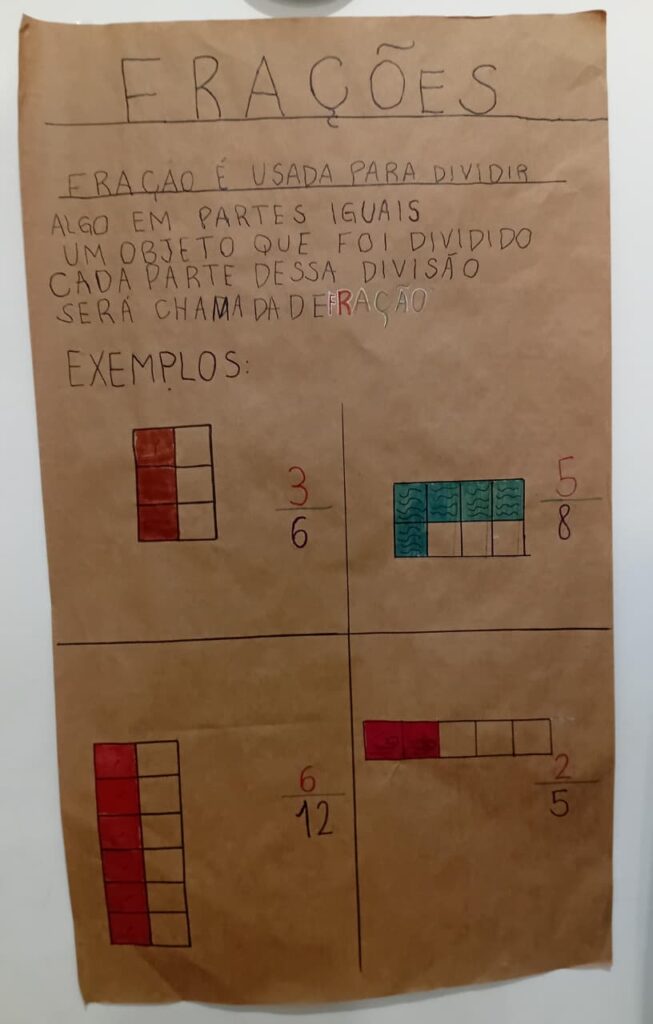 FRAÇÕES
FRAÇÃO É USADA PARA DIVIDIR
ALGO EM PARTES IGUAIS
UM OBJETO QUE FOI DIVIDIDO
CADA PARTE DESSA DIVISÃO
SERÁ CHAMADA DE FRAÇÃO
EXEMPLOS:
3/6
5/8
6/12
2/5